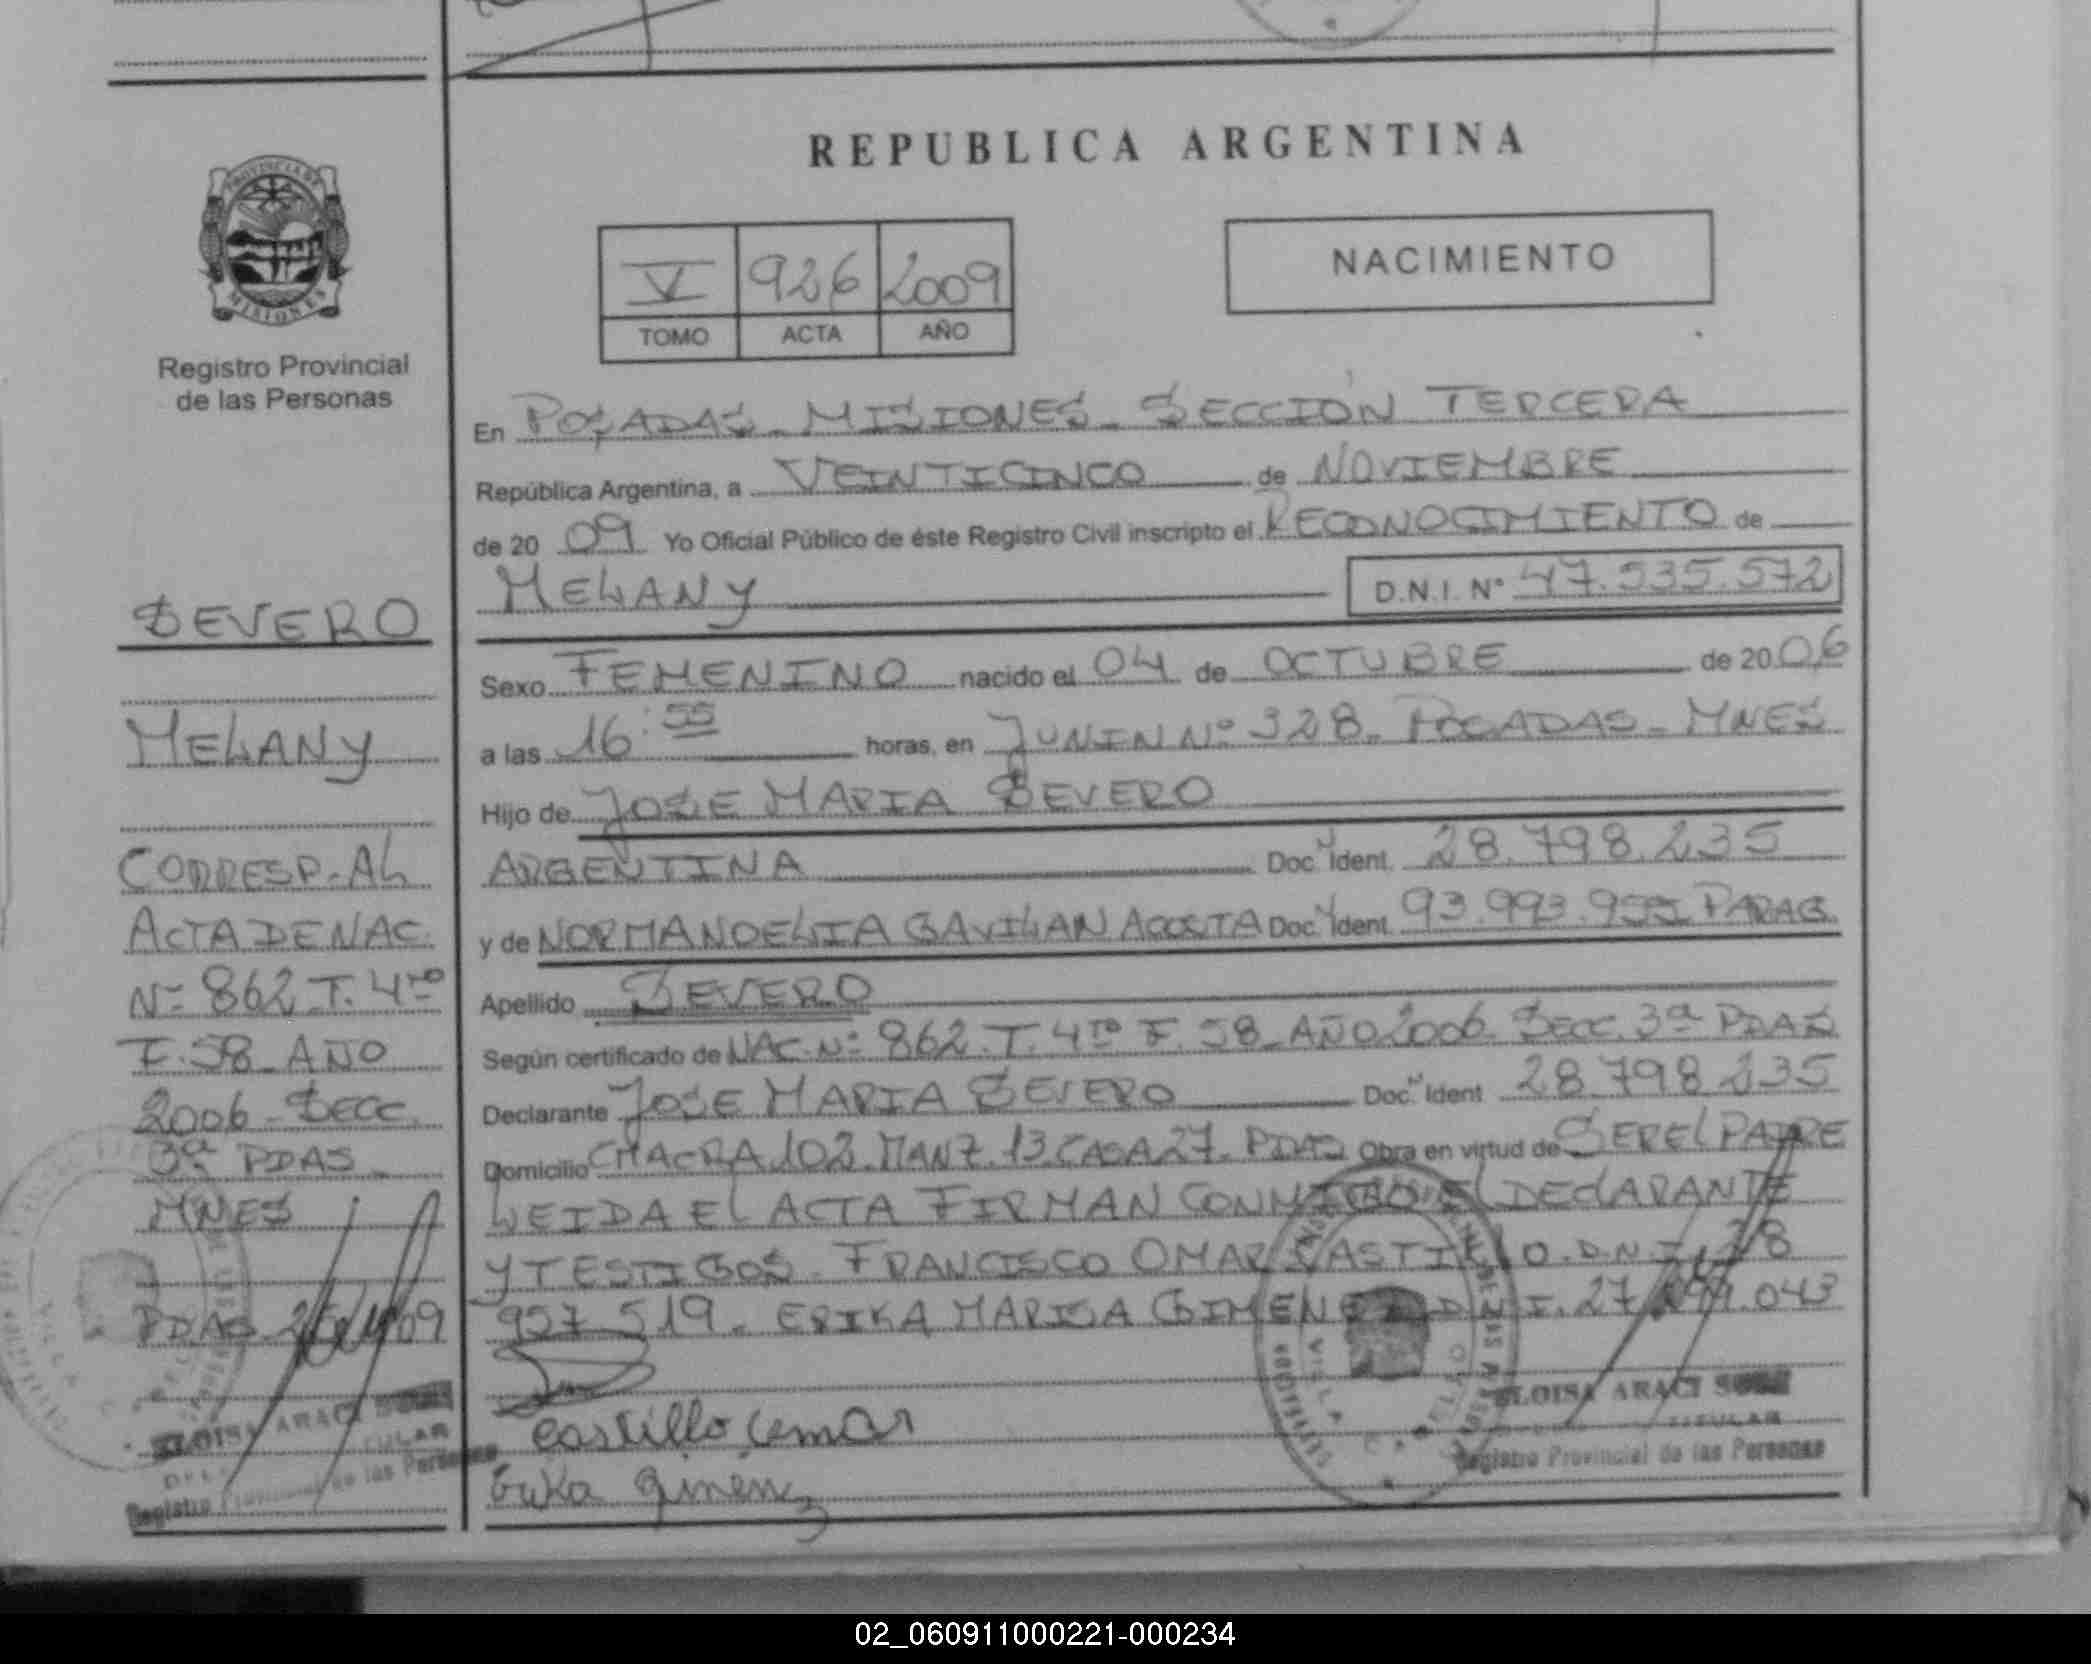 REPUBLICA ARGENTINA
PROVINCIA DE
MISIONES
Registro Provincial
de las Personas
V 926 2009
TOMO ACTA AÑO
NACIMIENTO
En POSADAS - MISIONES - SECCIÓN TERCERA
República Argentina, a VEINTICINCO de NOVIEMBRE
de 20 09 Yo Oficial Público de éste Registro Civil inscripto el RECONOCIMIENTO de
MELANY D.N.I. Nº 47.535.572
Sexo FEMENINO nacido el 04 de OCTUBRE de 20 06
a las 16:55 horas, en JUNIN Nº 328 - POSADAS - MNES
Hijo de JOSE MARIA SEVERO
ARGENTINA Doc. Ident. 28.798.235
y de NORMA NOELIA GAVILAN ACOSTA Doc. Ident. 93.993.955 PARAG.
Apellido SEVERO
Según certificado de NAC. Nº 862. T. 4to F. 58 - AÑO 2006 - SECC. 3ª PDAS
Declarante JOSE MARIA SEVERO Doc. Ident 28.798.235
Domicilio CHACRA 102. MANZ. 13. CASA 27 - PDAS Obra en virtud de SER EL PADRE
LEIDA EL ACTA FIRMAN CONMIGO EL DECLARANTE
Y TESTIGOS - FRANCISCO OMAR CASTILLO. D.N.I. 28
927 519 - ERIKA MARISA GIMENEZ D.N.I. 27 043
Castillo Omar
Erika Gimenez
ELOISA ARACI
TITULAR
Registro Provincial de las Personas
SEVERO
MELANY
CORRESP. AL
ACTA DE NAC.
Nº 862 T. 4to
F. 58 - AÑO
2006 - SECC.
3ª PDAS -
MNES
PDAS 25/11/09
ELOISA ARACI
TITULAR
Registro Provincial de las Personas
02_060911000221-000234